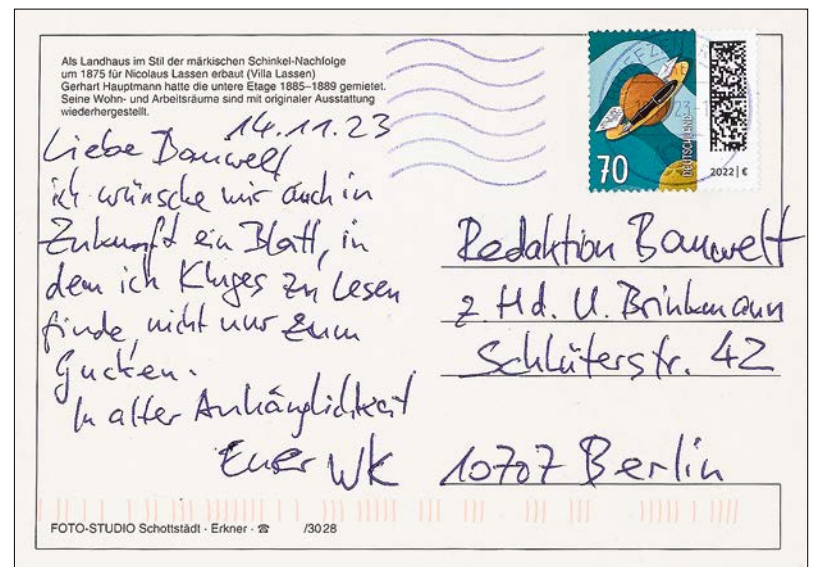 Als Landhaus im Stil der märkischen Schinkel-Nachfolge
um 1875 für Nicolaus Lassen erbaut (Villa Lassen)
Gerhart Hauptmann hatte die untere Etage 1885–1889 gemietet.
Seine Wohn- und Arbeitsräume sind mit originaler Ausstattung
wiederhergestellt.
14.11.23
Liebe Bauwelt
ich wünsche mir auch in
Zukunft ein Blatt, in
dem ich Kluges zu Lesen
finde, nicht nur zum
Gucken.
In alter Anhänglichkeit
Euer WK
70
DEUTSCHLAND
2022 | €
Redaktion Bauwelt
z. Hd. U. Brinkmann
Schlüterstr. 42
10707 Berlin
FOTO-STUDIO Schottstädt · Erkner · ☎ /3028